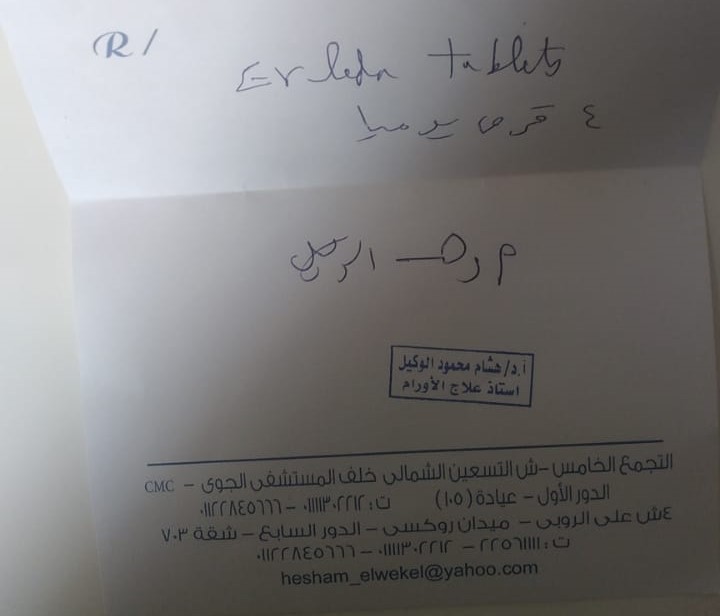 R/
Erleda tablets
٤ قرص يوميا
الوكيل
أ.د/ هشام محمود الوكيل
استاذ علاج الأورام
التجمع الخامس - ش التسعين الشمالى خلف المستشفى الجوى - CMC
الدور الأول - عيادة (١٠٥) ت: ٠١١١١٣٠٢٢١٢ - ٠١١٢٢٨٤٥٦٦٦
٤ش على الروبى - ميدان روكسى - الدور السابع - شقة ٧٠٣
ت: ٢٢٥٦١١١١ - ٠١١١١٣٠٢٢١٢ - ٠١١٢٢٨٤٥٦٦٦
hesham_elwekel@yahoo.com